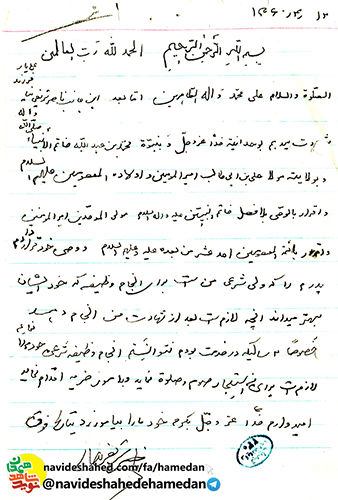 بسم الله الرحمن الرحیم الحمد لله رب العالمین
الصلوة والسلام علی محمد و اله الطاهرین اما بعد این جانب ناصر
شهادت میدهم بوحدانیة خدا عز و جل و بنبوة محمد بن عبد الله خاتم الانبیاء
و بولایة مولا علی بن ابی طالب امیر المؤمنین و اولاده المعصومین علیهم السلام
و اقرار بالوصی بلافصل خاتم النبیین علیه و اله السلام مولی الموحدین امیر المؤمنین
و اقرار بائمة المعصومین احد عشر من بعده علیه و علیهم السلام و وصی خود قرار دادم
پدرم را که ولی شرعی من است برای انجام وظیفه که خود ایشان
بهتر میداند آنچه لازم است بعد از شهادت من انجام دهد
خصوصاً که در خدمت بودم نتوانستم انجام وظیفه شرعی خود
لازم است برای من استیجار صوم و صلوة نماید و بامور خیریه اقدام نماید
امیدوارم خدا عز و جل بکرم خود ما را بیامرزد بتاریخ فوق
navideshahed.com/fa/hamedan
@navideshahedehamedan